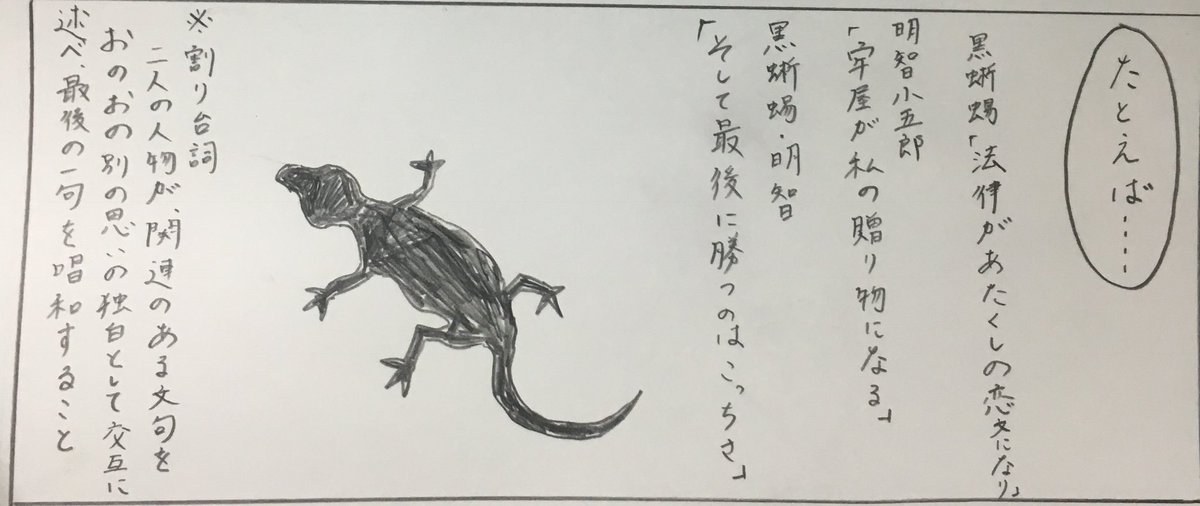 たとえば……
黒蜥蜴「法律があたくしの恋文になり」
明智小五郎
「牢屋が私の贈り物になる」
黒蜥蜴・明智
「そして最後に勝つのはこっちさ」
※割り台詞
二人の人物が、関連のある文句を
おのおの別の思いの独白として交互に
述べ、最後の一句を唱和すること